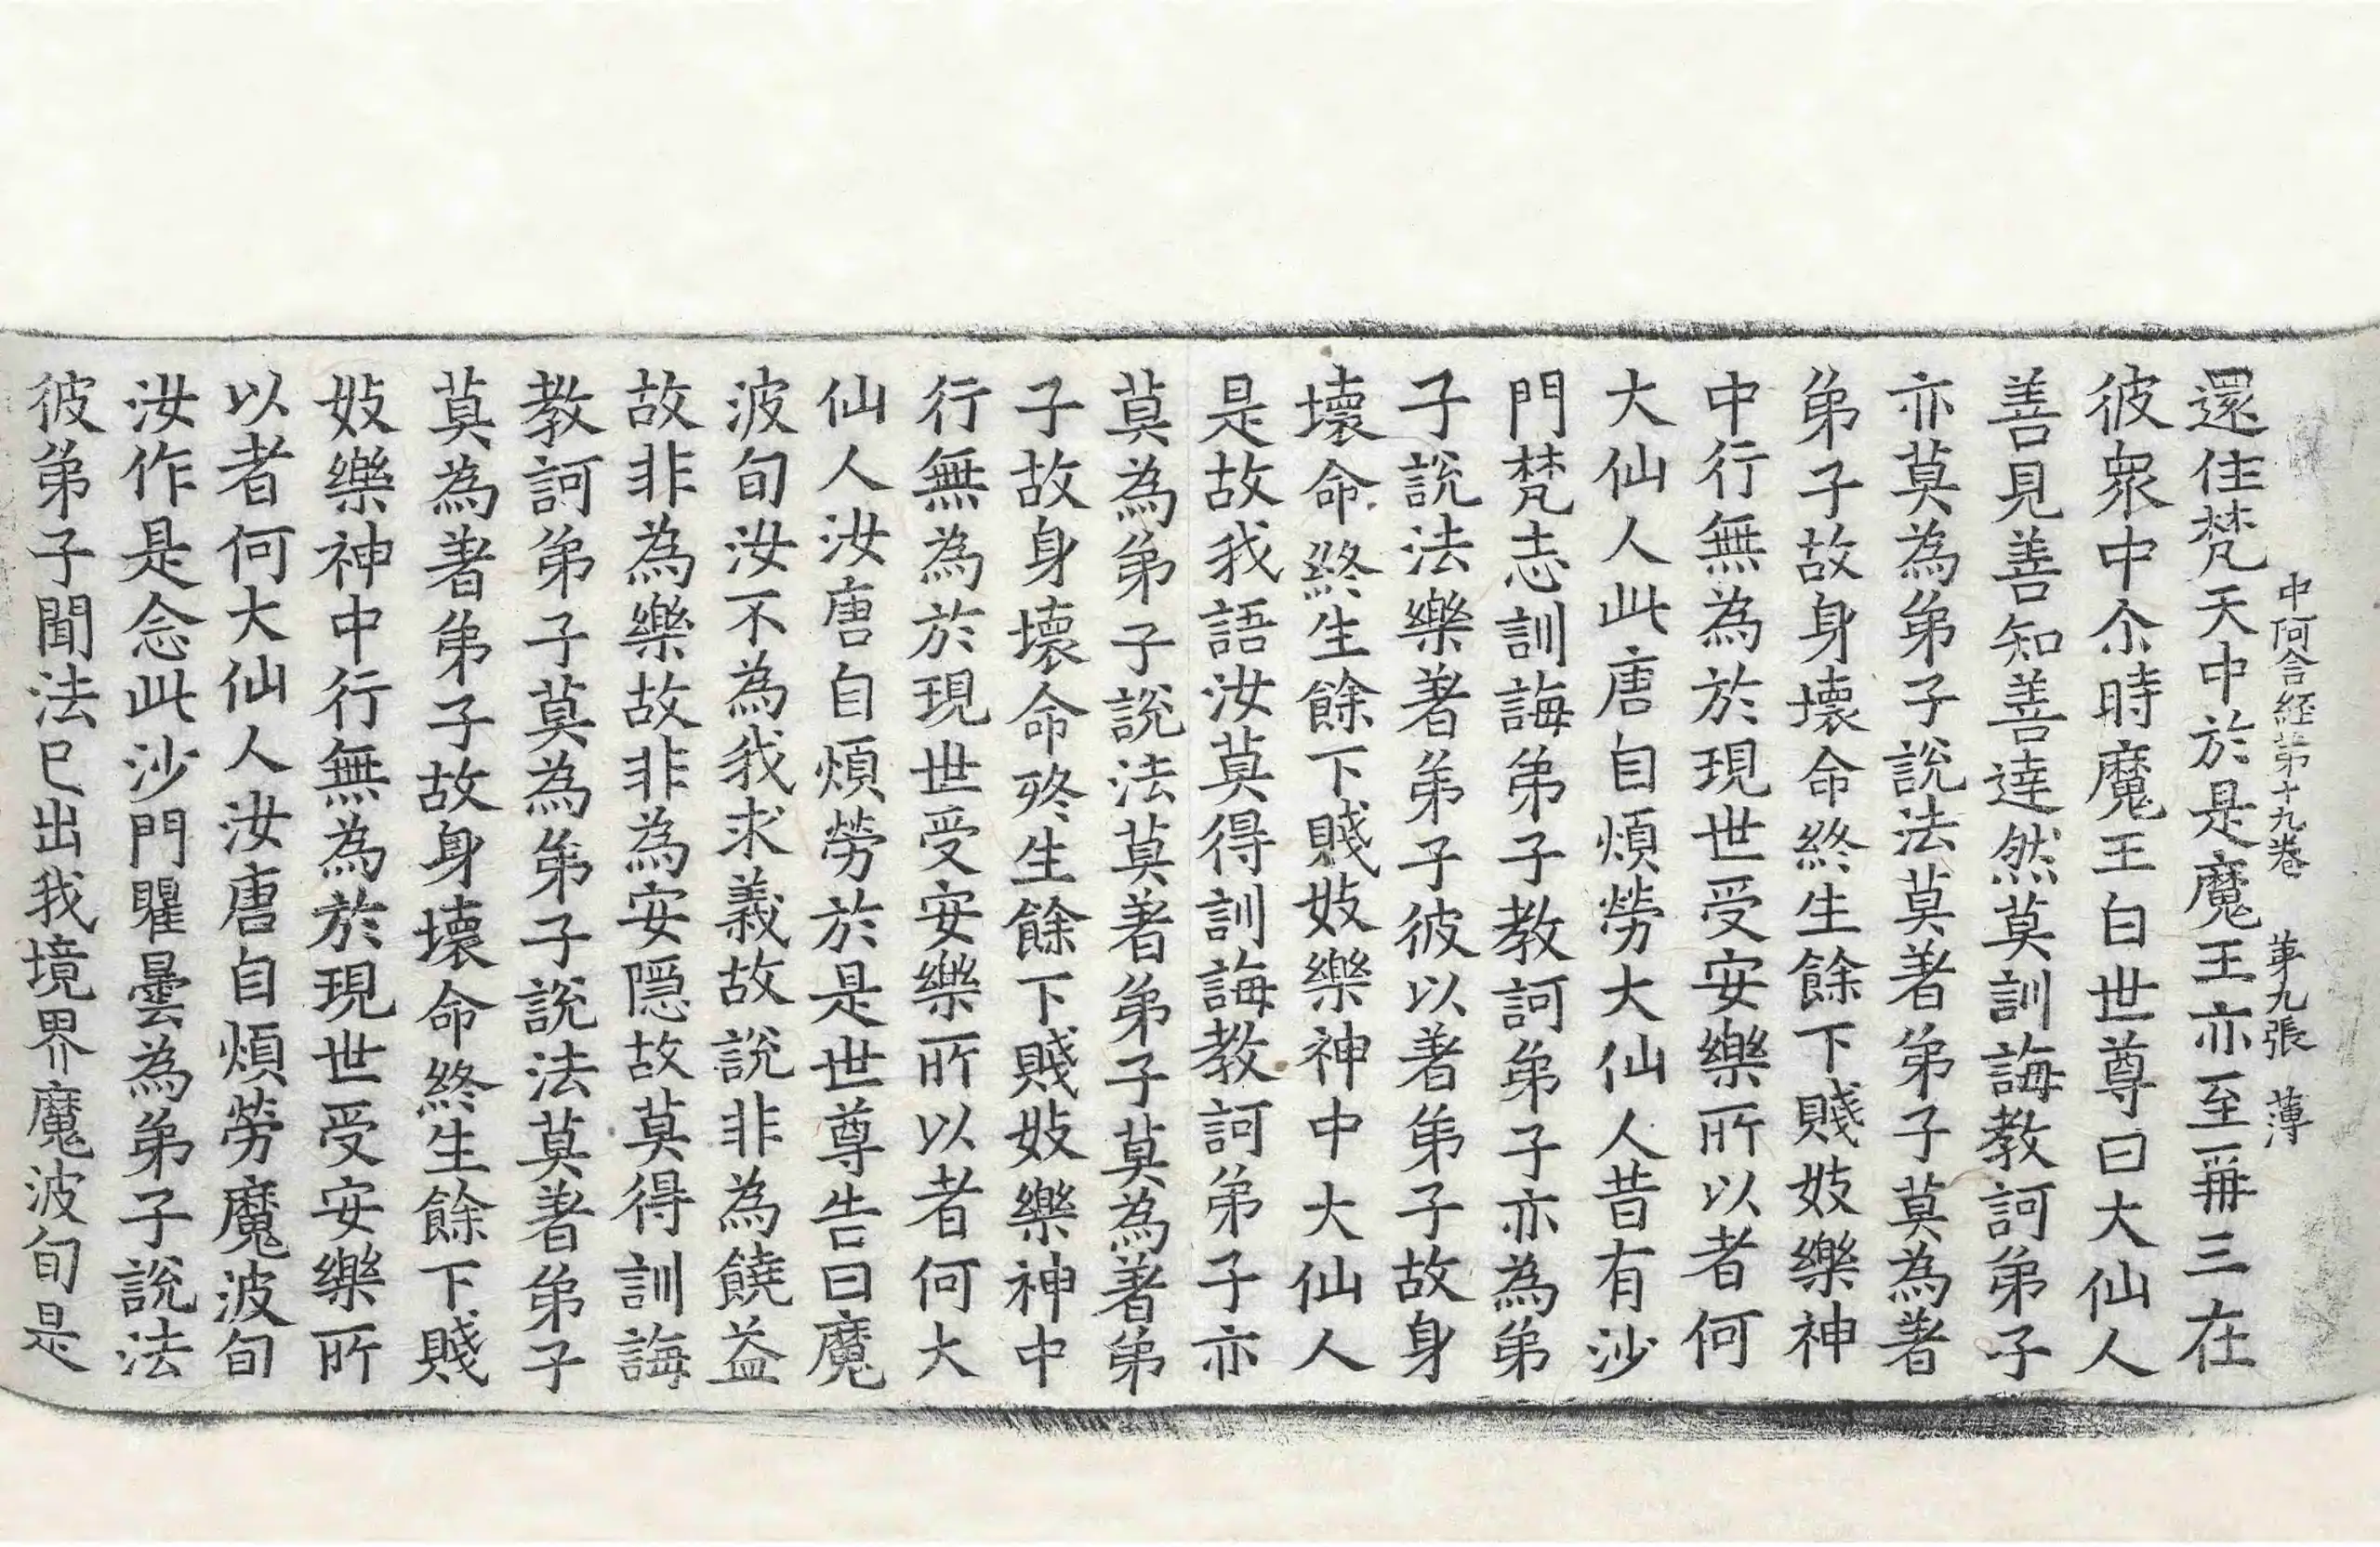 中阿含経第十九卷　第九張　薄
還住梵天中於是魔王亦至再三在
彼衆中尒時魔王白世尊曰大仙人
善見善知善達然莫訓誨教訶弟子
亦莫為弟子說法莫著弟子莫為著
弟子故身壞命終生餘下賤妓樂神
中行無為於現世受安樂所以者何
大仙人此唐自煩勞大仙人昔有沙
門梵志訓誨弟子教訶弟子亦為弟
子說法樂著弟子彼以著弟子故身
壞命終生餘下賤妓樂神中大仙人
是故我語汝莫得訓誨教訶弟子亦
莫為弟子說法莫著弟子莫為著弟
子故身壞命終生餘下賤妓樂神中
行無為於現世受安樂所以者何大
仙人汝唐自煩勞於是世尊告曰魔
波旬汝不為我求義故說非為饒益
故非為樂故非為安隱故莫得訓誨
教訶弟子莫為弟子說法莫著弟子
莫為著弟子故身壞命終生餘下賤
妓樂神中行無為於現世受安樂所
以者何大仙人汝唐自煩勞魔波旬
汝作是念此沙門瞿曇為弟子說法
彼弟子聞法已出我境界魔波旬是